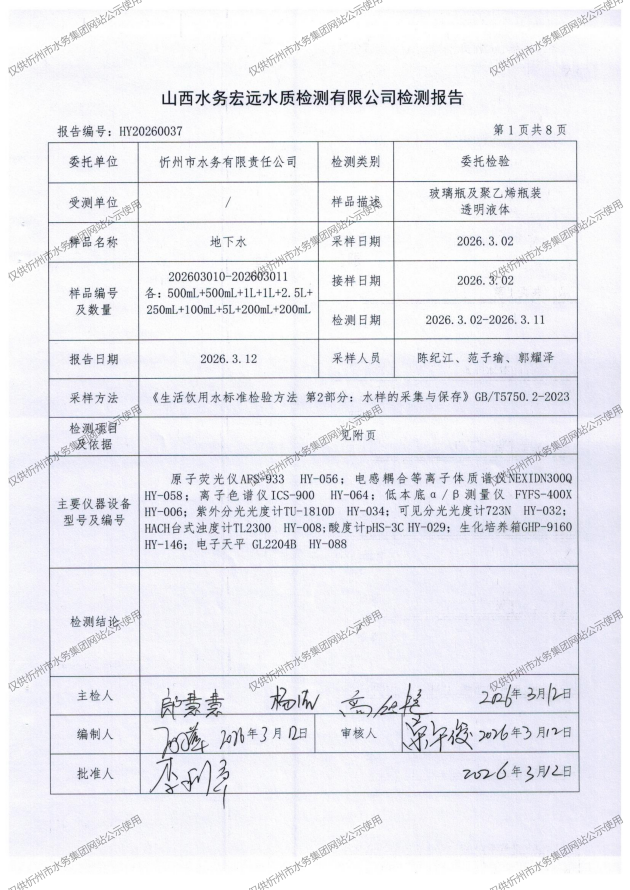 山西水务宏远水质检测有限公司检测报告
报告编号：HY20260037
第 1 页共 8 页
委托单位 忻州市水务有限责任公司 检测类别 委托检验
受测单位 / 样品描述 玻璃瓶及聚乙烯瓶装
透明液体
样品名称 地下水 采样日期 2026.3.02
样品编号
及数量
202603010-202603011
各：500mL+500mL+1L+1L+2.5L+
250mL+100mL+5L+200mL+200mL
接样日期 2026.3.02
检测日期 2026.3.02-2026.3.11
报告日期 2026.3.12 采样人员 陈纪江、范子瑜、郭耀泽
采样方法 《生活饮用水标准检验方法 第2部分：水样的采集与保存》GB/T5750.2-2023
检测项目
及依据
见附页
主要仪器设备
型号及编号
原子荧光仪AFS-933 HY-056；电感耦合等离子体质谱仪NEXIDN300Q
HY-058；离子色谱仪ICS-900 HY-064；低本底α/β测量仪 FYFS-400X
HY-006；紫外分光光度计TU-1810D HY-034；可见分光光度计723N HY-032；
HACH台式浊度计TL2300 HY-008;酸度计pHS-3C HY-029；生化培养箱GHP-9160
HY-146；电子天平 GL2204B HY-088
检测结论
主检人 郎慧慧 2026年3月12日
编制人 2026年3月12日 审核人 2026年3月12日
批准人 2026年3月12日
仅供忻州市水务集团网站公示使用